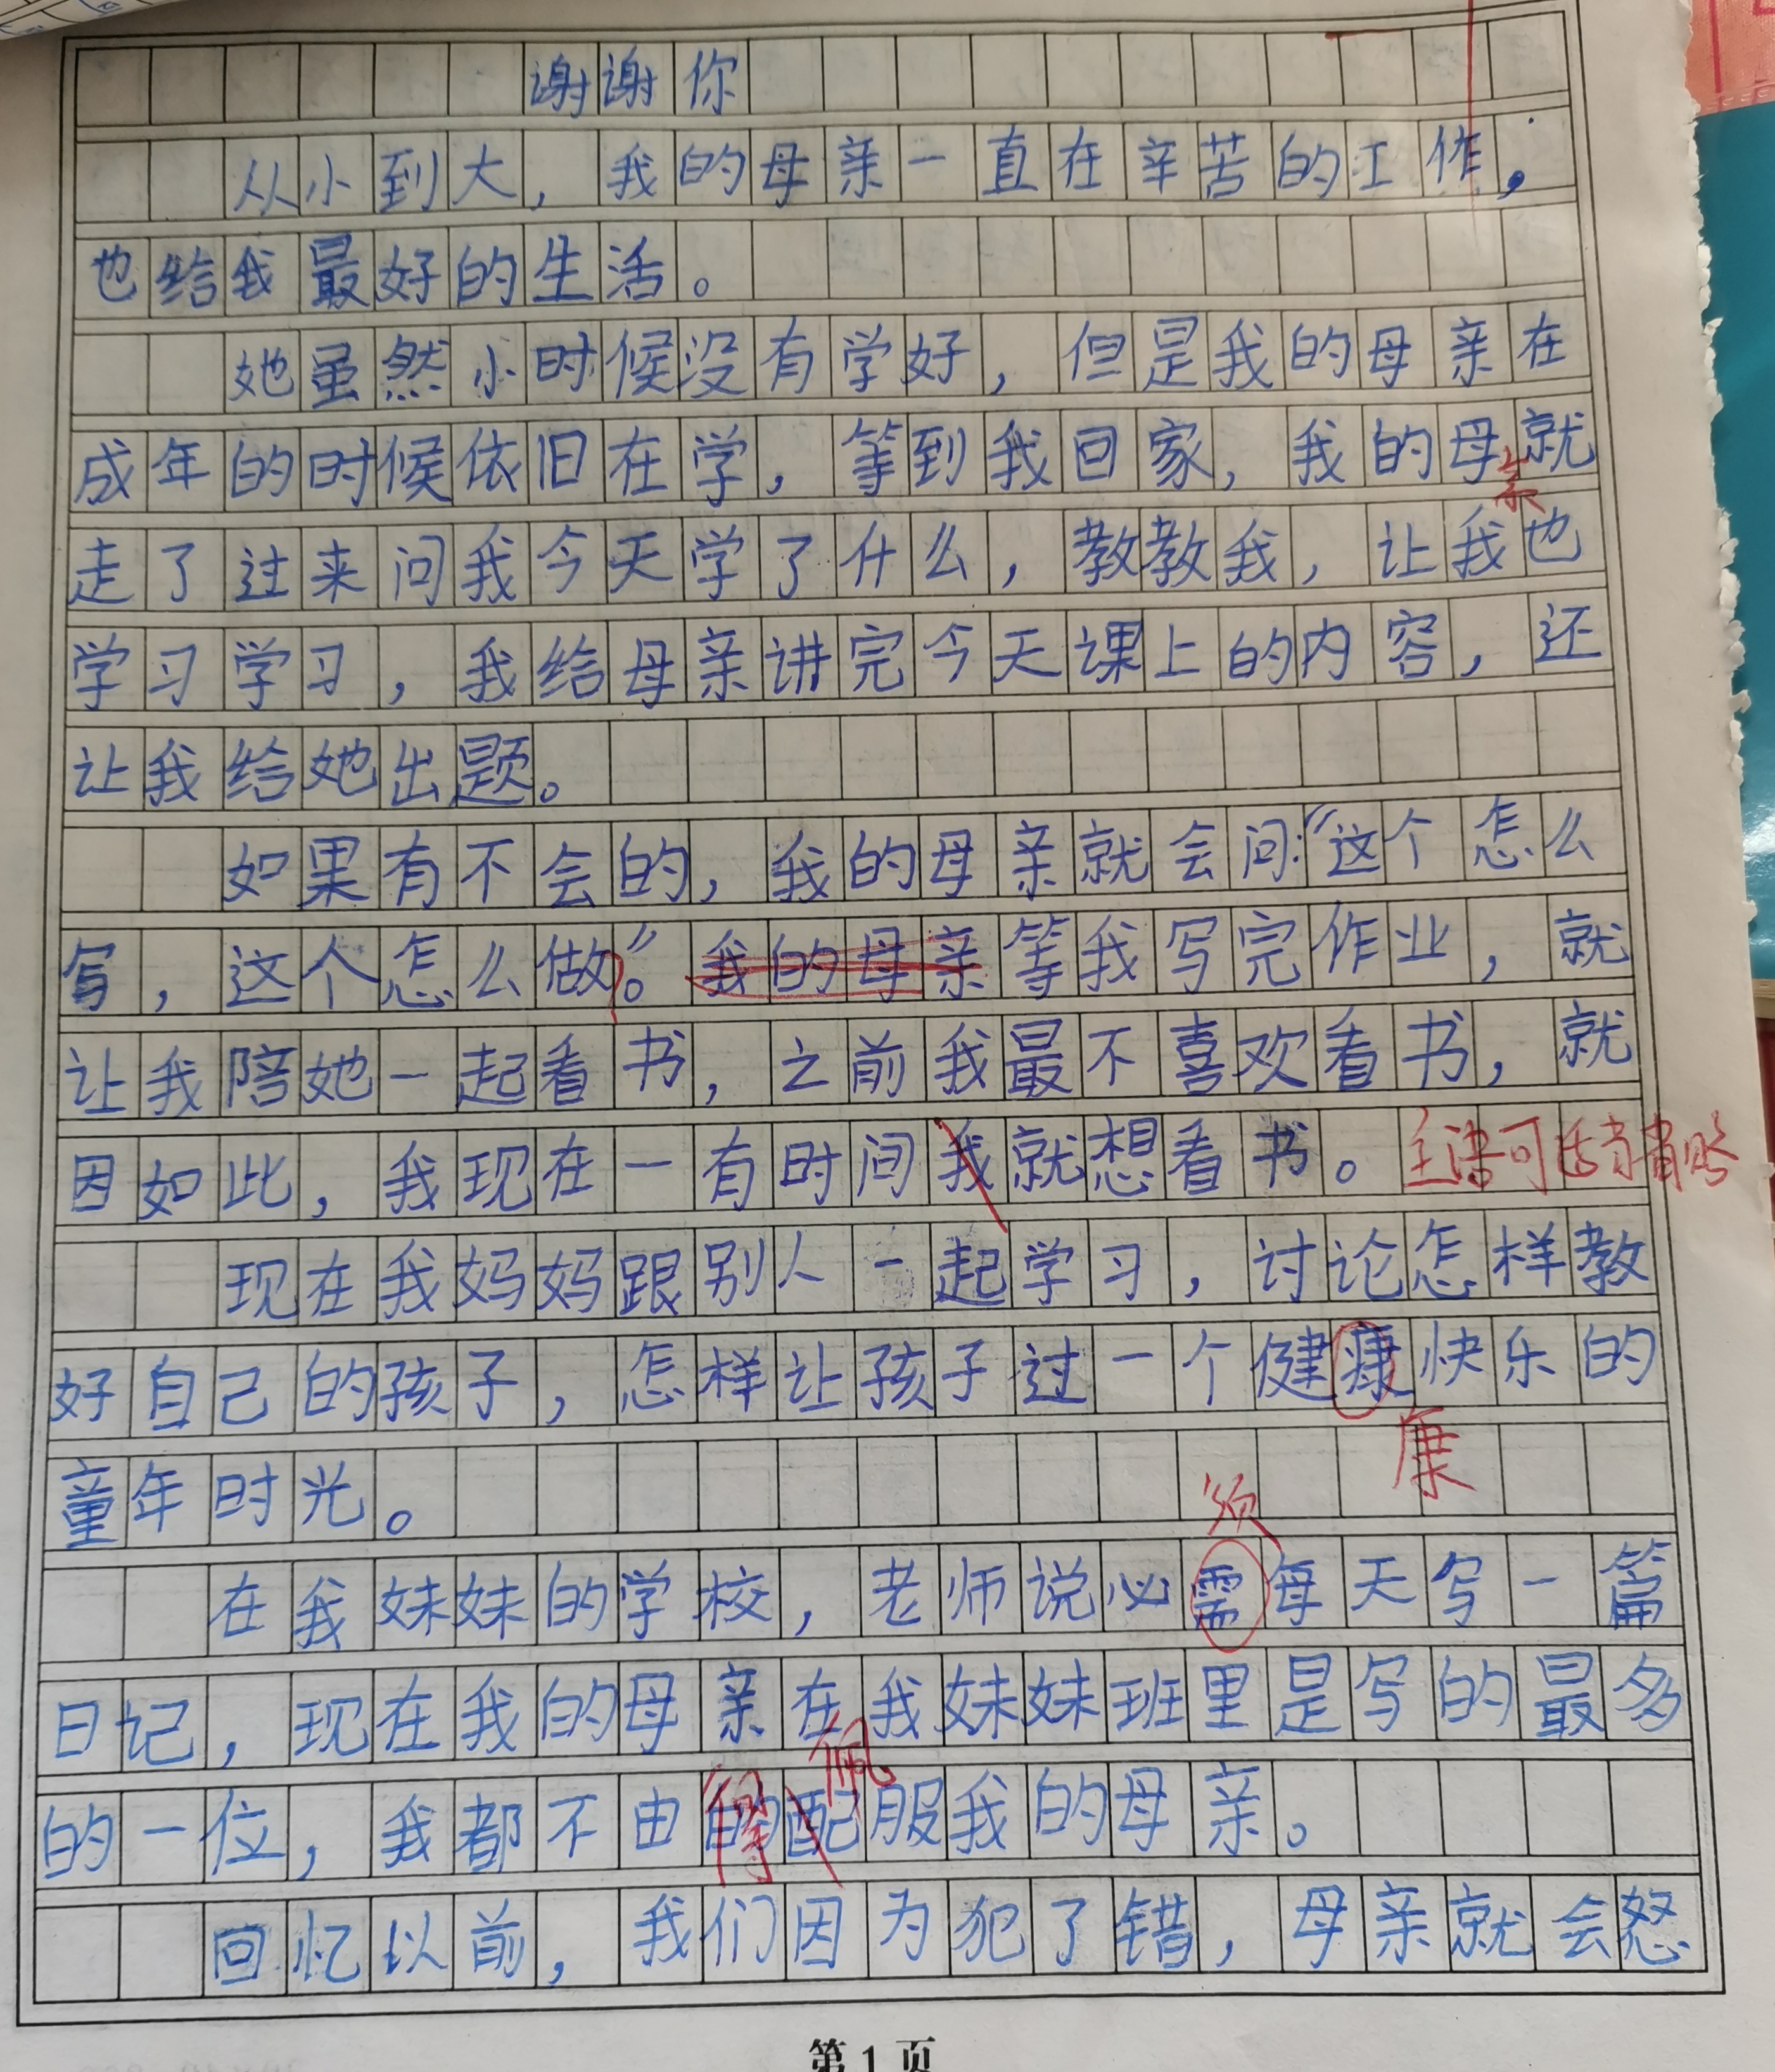 谢谢你
从小到大，我的母亲一直在辛苦的工作，
也给我最好的生活。
她虽然小时候没有学好，但是我的母亲在
成年的时候依旧在学，等到我回家，我的母就
亲
走了过来问我今天学了什么，教教我，让我也
学习学习，我给母亲讲完今天课上的内容，还
让我给她出题。
如果有不会的，我的母亲就会问：“这个怎么
写，这个怎么做。”我的母亲等我写完作业，就
让我陪她一起看书，之前我最不喜欢看书，就
因如此，我现在一有时间我就想看书。主语可适当省略
现在我妈妈跟别人一起学习，讨论怎样教
好自己的孩子，怎样让孩子过一个健康快乐的
康
童年时光。
须
在我妹妹的学校，老师说必需每天写一篇
日记，现在我的母亲在我妹妹班里是写的最多
得 佩
的一位，我都不由的配服我的母亲。
回忆以前，我们因为犯了错，母亲就会怒
第1页